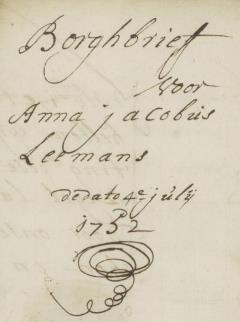 Borghbrief
voor
Anna jacobus
Leemans
de dato 4e julij
1752